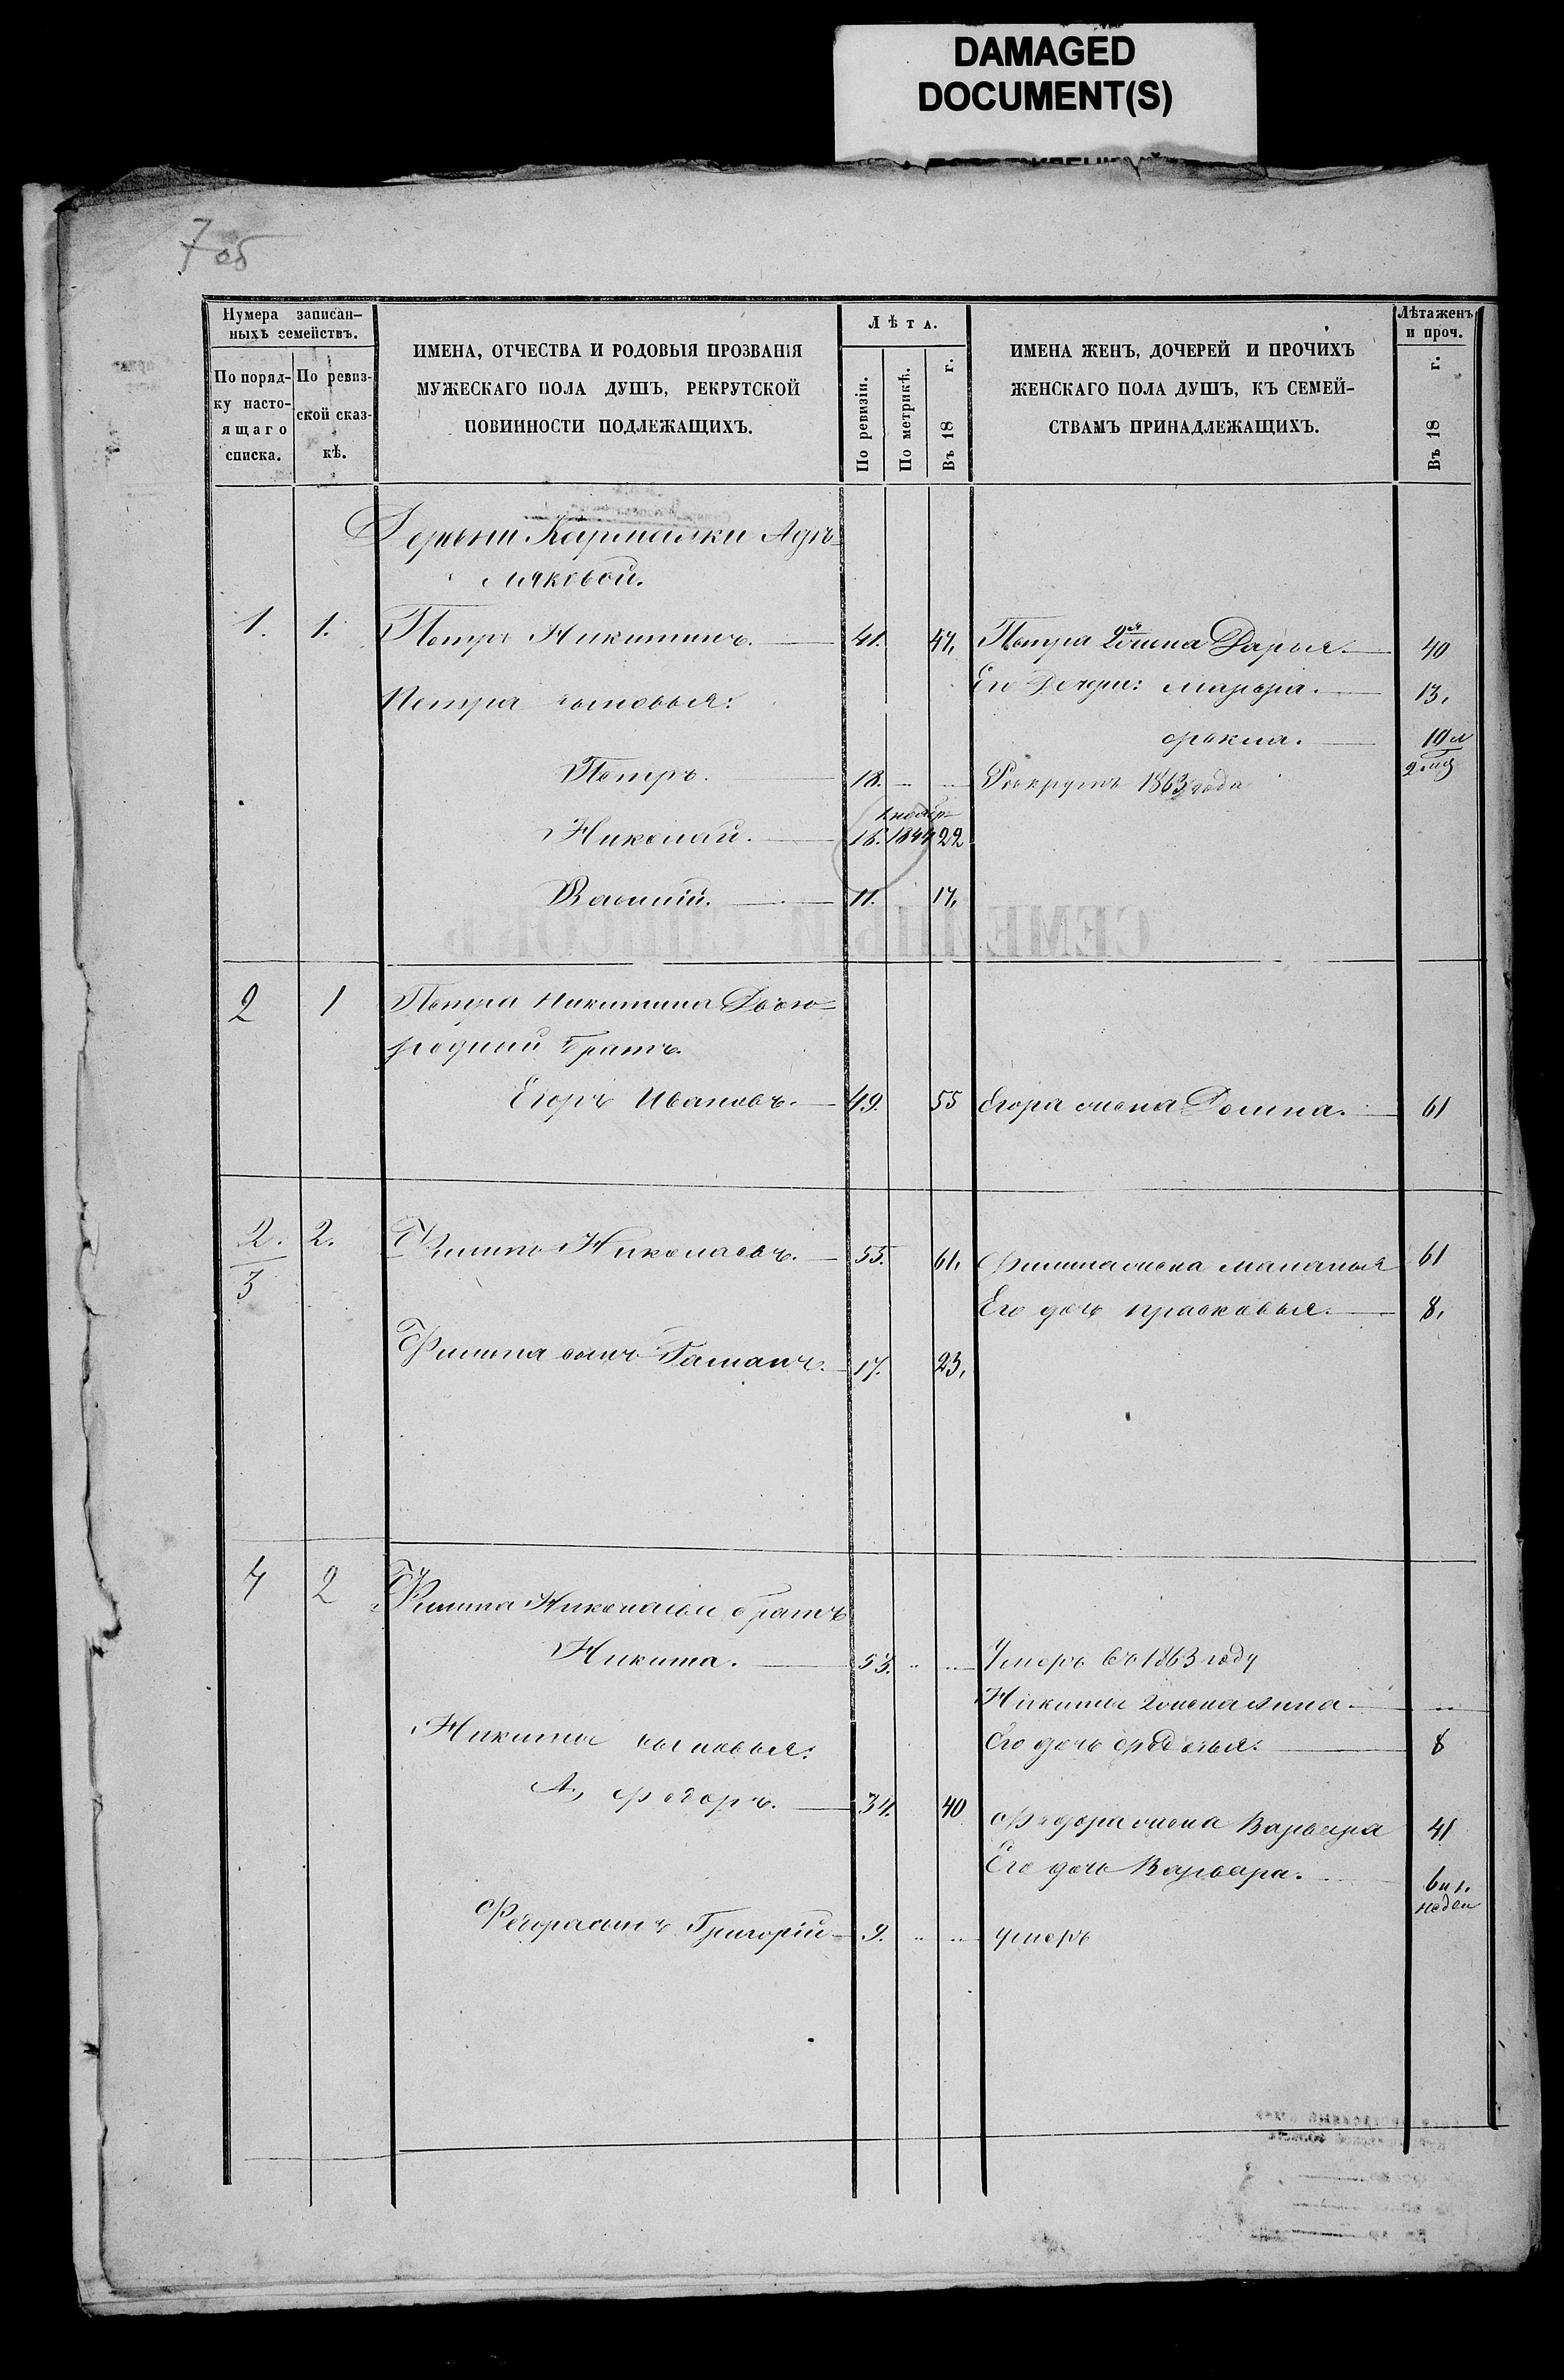 DAMAGED
DOCUMENT(S)
7об
Нумера записан-
ныхъ семействъ.
По поряд-
ку насто-
ящаго
списка.
По ревиз-
ской сказ-
кѣ.
ИМЕНА, ОТЧЕСТВА И РОДОВЫЯ ПРОЗВАНІЯ
МУЖЕСКАГО ПОЛА ДУШЪ, РЕКРУТСКОЙ
ПОВИННОСТИ ПОДЛЕЖАЩИХЪ.
Лѣта.
По ревизіи.
По метрикѣ.
Въ 18 г.
ИМЕНА ЖЕНЪ, ДОЧЕРЕЙ И ПРОЧИХЪ
ЖЕНСКАГО ПОЛА ДУШЪ, КЪ СЕМЕЙ-
СТВАМЪ ПРИНАДЛЕЖАЩИХЪ.
Лѣта женъ
и проч.
Въ 18 г.
Деревни Кармалки
1. 1. Петръ Никитинъ. 41. 47, Петра 2ая жена Дарья. 40
Его Дочери: Марфа. 13,
Петра сыновья:
Фекла. 10 л
2 мц
Петръ. 18. Рекрутъ 1863 года
Николай. 16. 1844 22
Василій. 11. 17,
2 1 Петра Никитина Двою=
родный братъ
Егоръ Ивановъ. 49. 55 Егора жена Домна. 61
2. 2. Филипъ Николаевъ. 55. 61, Филипа жена Маланья 61
3
Его дочь Прасковья. 8,
Филипа сынъ Романъ. 17. 23,
4 2 Филипа Николаева братъ
Никита. 53. Умеръ въ 1863 году
Никиты жена
Никиты сыновья: Его дочь Федосья. 8
А, Федоръ. 34. 40 Федора жена Варвара 41
Его дочь Варвара.
недел
Федора сынъ Григорій 9. умеръ